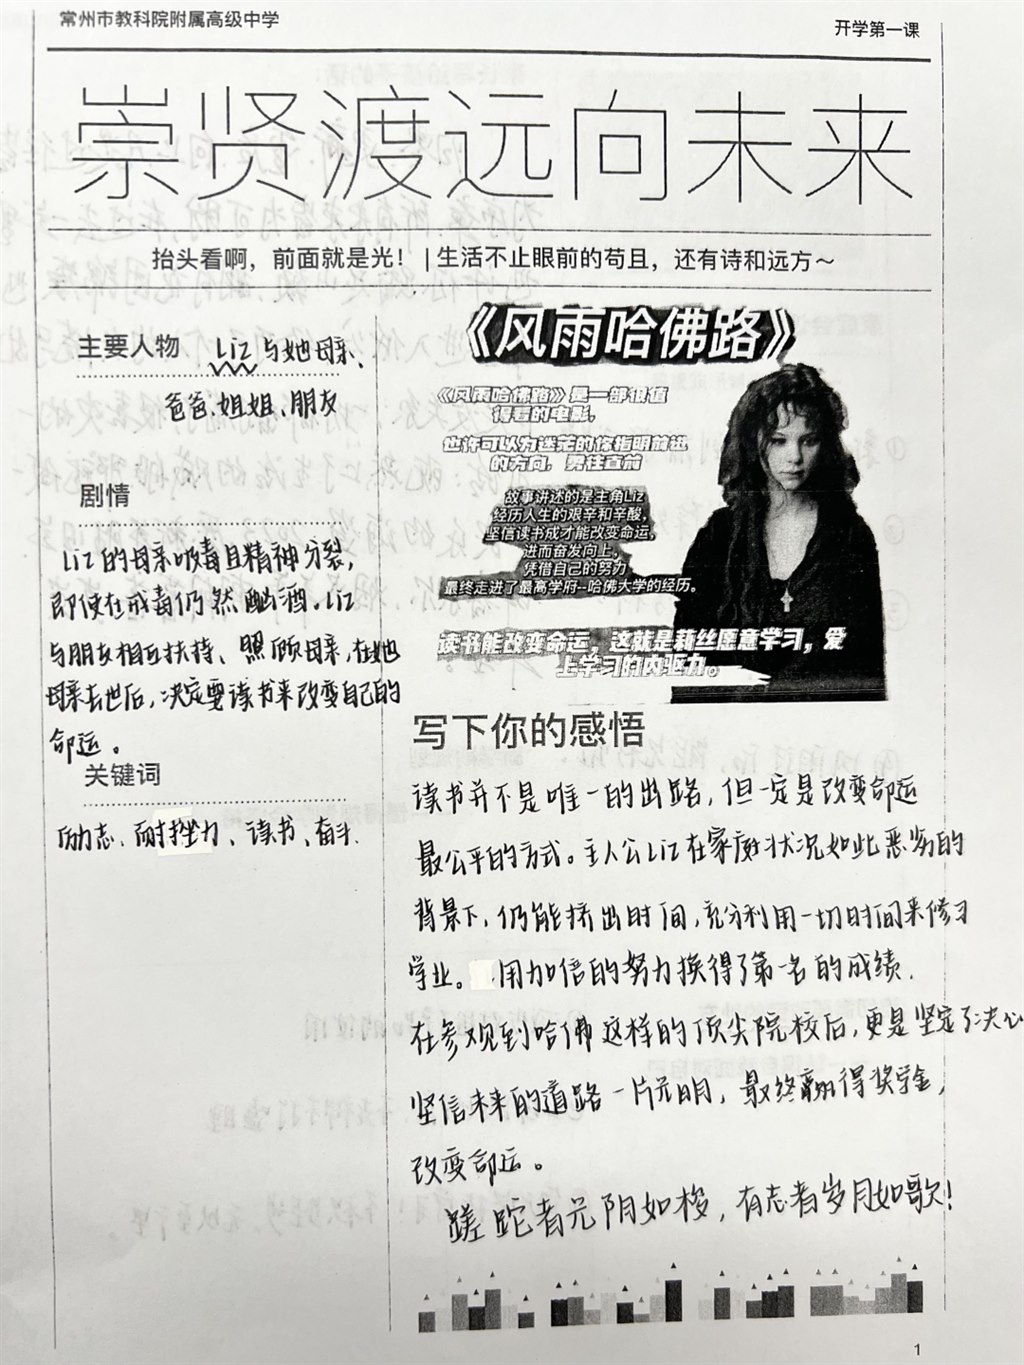 常州市教科院附属高级中学
开学第一课
崇贤渡远向未来
抬头看啊，前面就是光！ | 生活不止眼前的苟且，还有诗和远方～
主要人物 Liz 与她母亲、
爸爸、姐姐、朋友
剧情
Liz 的母亲吸毒且精神分裂，
即使在戒毒仍然酗酒。Liz
与朋友相互扶持、照顾母亲，在她
母亲去世后，决定要读书来改变自己的
命运。
关键词
励志、耐挫力、读书、奋斗.
《风雨哈佛路》
《风雨哈佛路》是一部很值
得看的电影，
也许可以为迷茫的你指明前进
的方向，勇往直前
故事讲述的是主角Liz
经历人生的艰辛和辛酸，
坚信读书成才能改变命运，
进而奋发向上，
凭借自己的努力
最终走进了最高学府--哈佛大学的经历。
读书能改变命运，这就是莉丝愿意学习，爱
上学习的内驱力。
写下你的感悟
读书并不是唯一的出路，但一定是改变命运
最公平的方式。主人公Liz在家庭状况如此恶劣的
背景下，仍能挤出时间，充分利用一切时间来修习
学业。用加倍的努力换得了第一名的成绩.
在参观到哈佛这样的顶尖院校后，更是坚定了决心
坚信未来的道路一片光明，最终赢得奖学金，
改变命运。
蹉跎者光阴如梭，有志者岁月如歌！
1